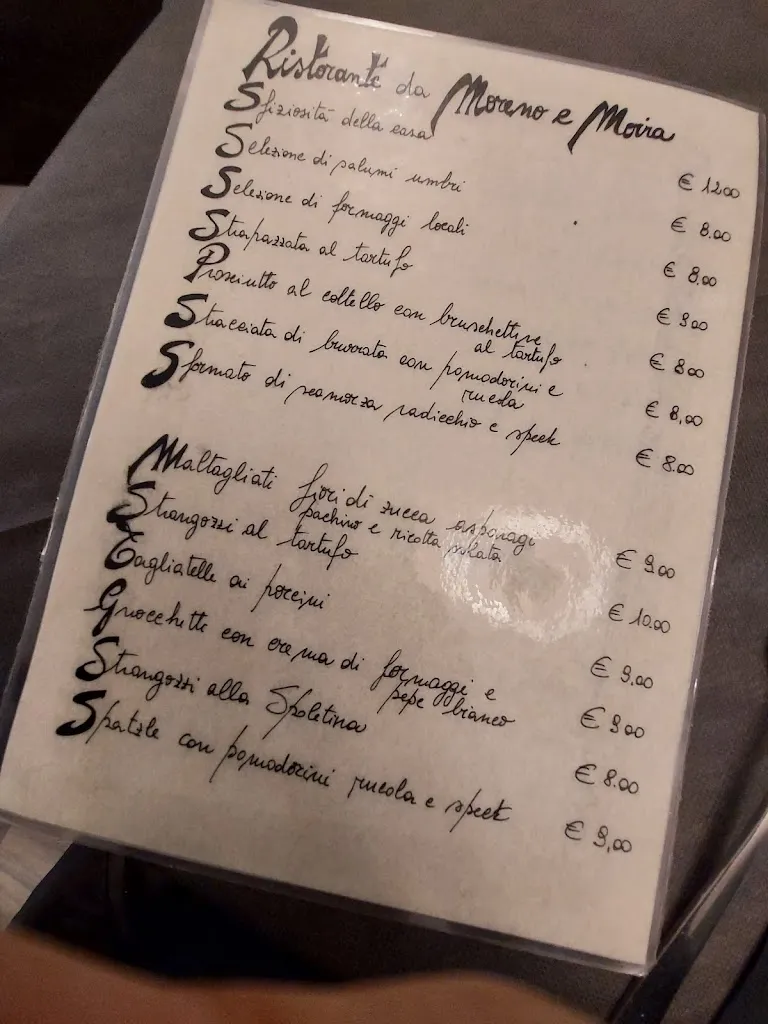 Ristorante da Moreno e Moira
Sfiziosità della casa € 12.00
Selezione di salumi umbri € 8.00
Selezione di formaggi locali € 8.00
Strapazzata al tartufo € 9.00
Prosciutto al coltello con bruschettine
al tartufo € 8.00
Stracciata di burrata con pomodorini e
rucola € 8,00
Sformato di scamorza radicchio e speck € 8.00
Maltagliati fiori di zucca asparagi
pachino e ricotta salata € 9.00
Strangozzi al tartufo € 10.00
Tagliatelle ai porcini € 9.00
Gnocchetti con crema di formaggi e
pepe bianco € 9.00
Strangozzi alla Spoletina € 8.00
Spatzle con pomodorini rucola e speck € 9,00